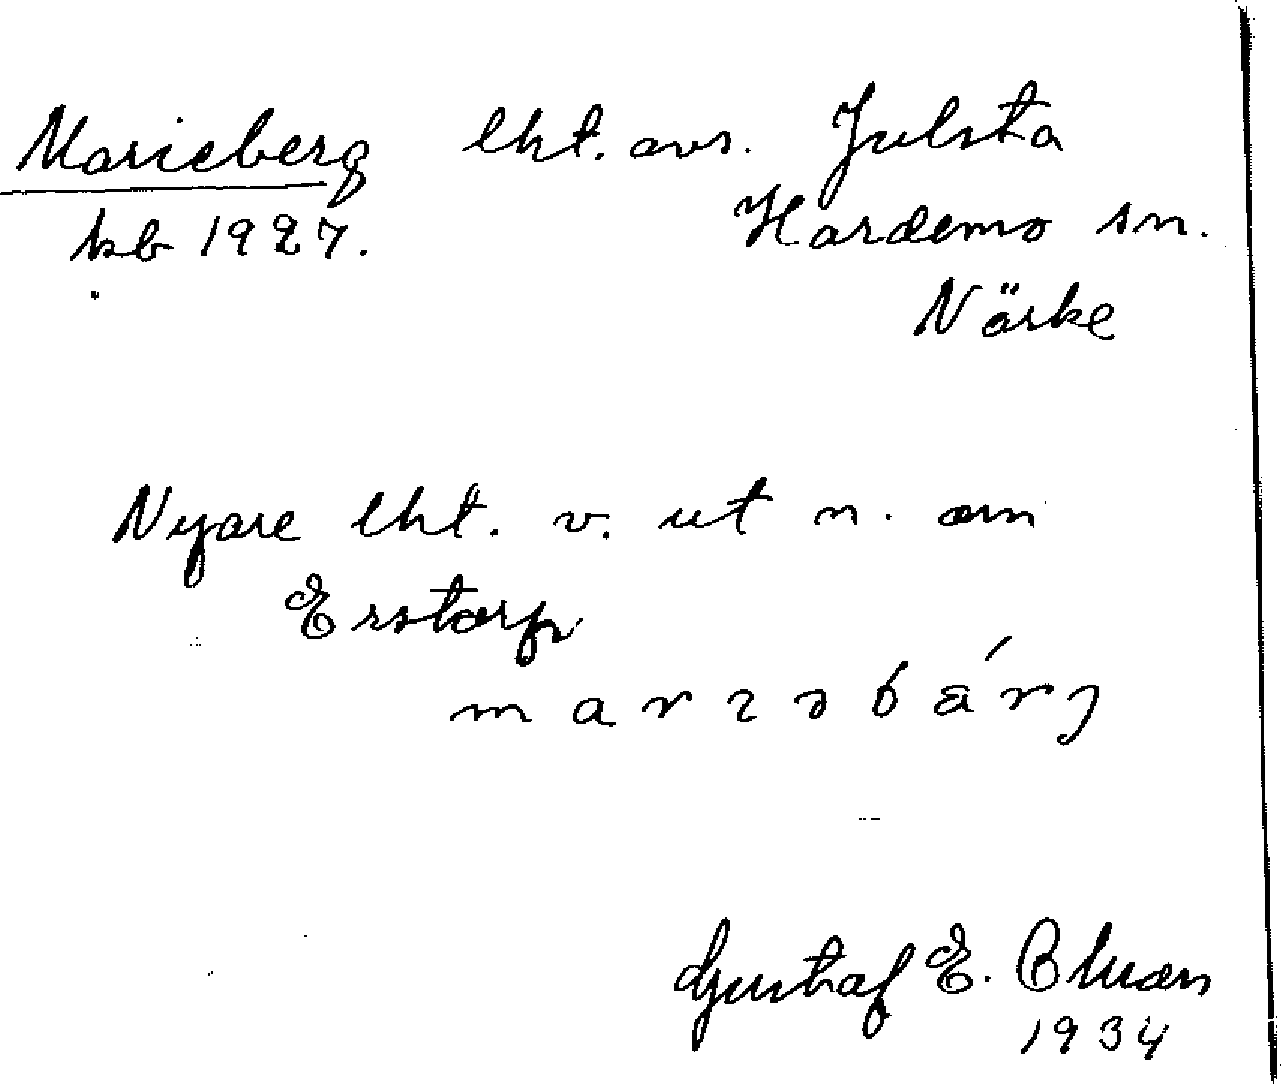 Marieberg lht. avs. Julsta
kb 1927. Hardemo sn.
Närke
Nyare lht. v. ut n. om
Erstorp
marɩəbä́rj
Gustaf E.
1934